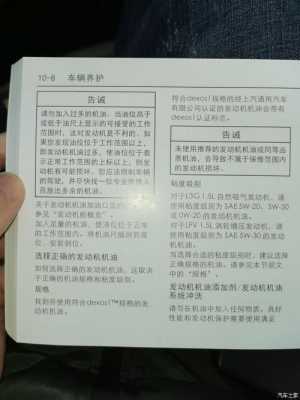 10-8 车辆养护
告诫
请勿加入过多的机油。当油位高于
或低于油尺上显示的可接受的工作
范围时，这对发动机是不利的。如
果你发现油位位于工作范围以上，
即发动机机油过多，使油位位于表
示正常工作范围的上标以上，则发
动机有可能损坏。您应该限制车辆
的驾驶，并尽快找一位专业修理人
员放出多余的机油。
关于发动机机油加油口盖的位置，
参见“发动机舱概览”。
加入足量的机油，使液位位于正常
的工作范围内。将机油尺插回到底
位，安装到位。
选择正确的发动机机油
如何选择正确的发动机机油，这取决
于正确的机油规格和粘度级别。
规格
找到并使用符合dexos1™规格的发
动机机油。
符合dexos1规格的经上汽通用汽车
有限公司认证的发动机机油会带有
dexos1认证标志。
告诫
未使用推荐的发动机机油或同等品
质机油，会导致不属于保修范围内
的发动机损坏。
粘度级别
对于L3G 1.5L自然吸气发动机，请
使用粘度级别为SAE 5W-20、5W-30
或0W-20的发动机机油。
对于LFV 1.5L涡轮增压发动机，请
使用粘度级别为SAE 5W-30的发动
机机油。
当选择合适的粘度级别时，建议选择
正确规格的机油。请参见本节前文
中的“规格”。
发动机机油添加剂/发动机机油
系统冲洗
请勿在机油中加入任何物质。良好
性能和发动机保护需要使用满足
汽车之家